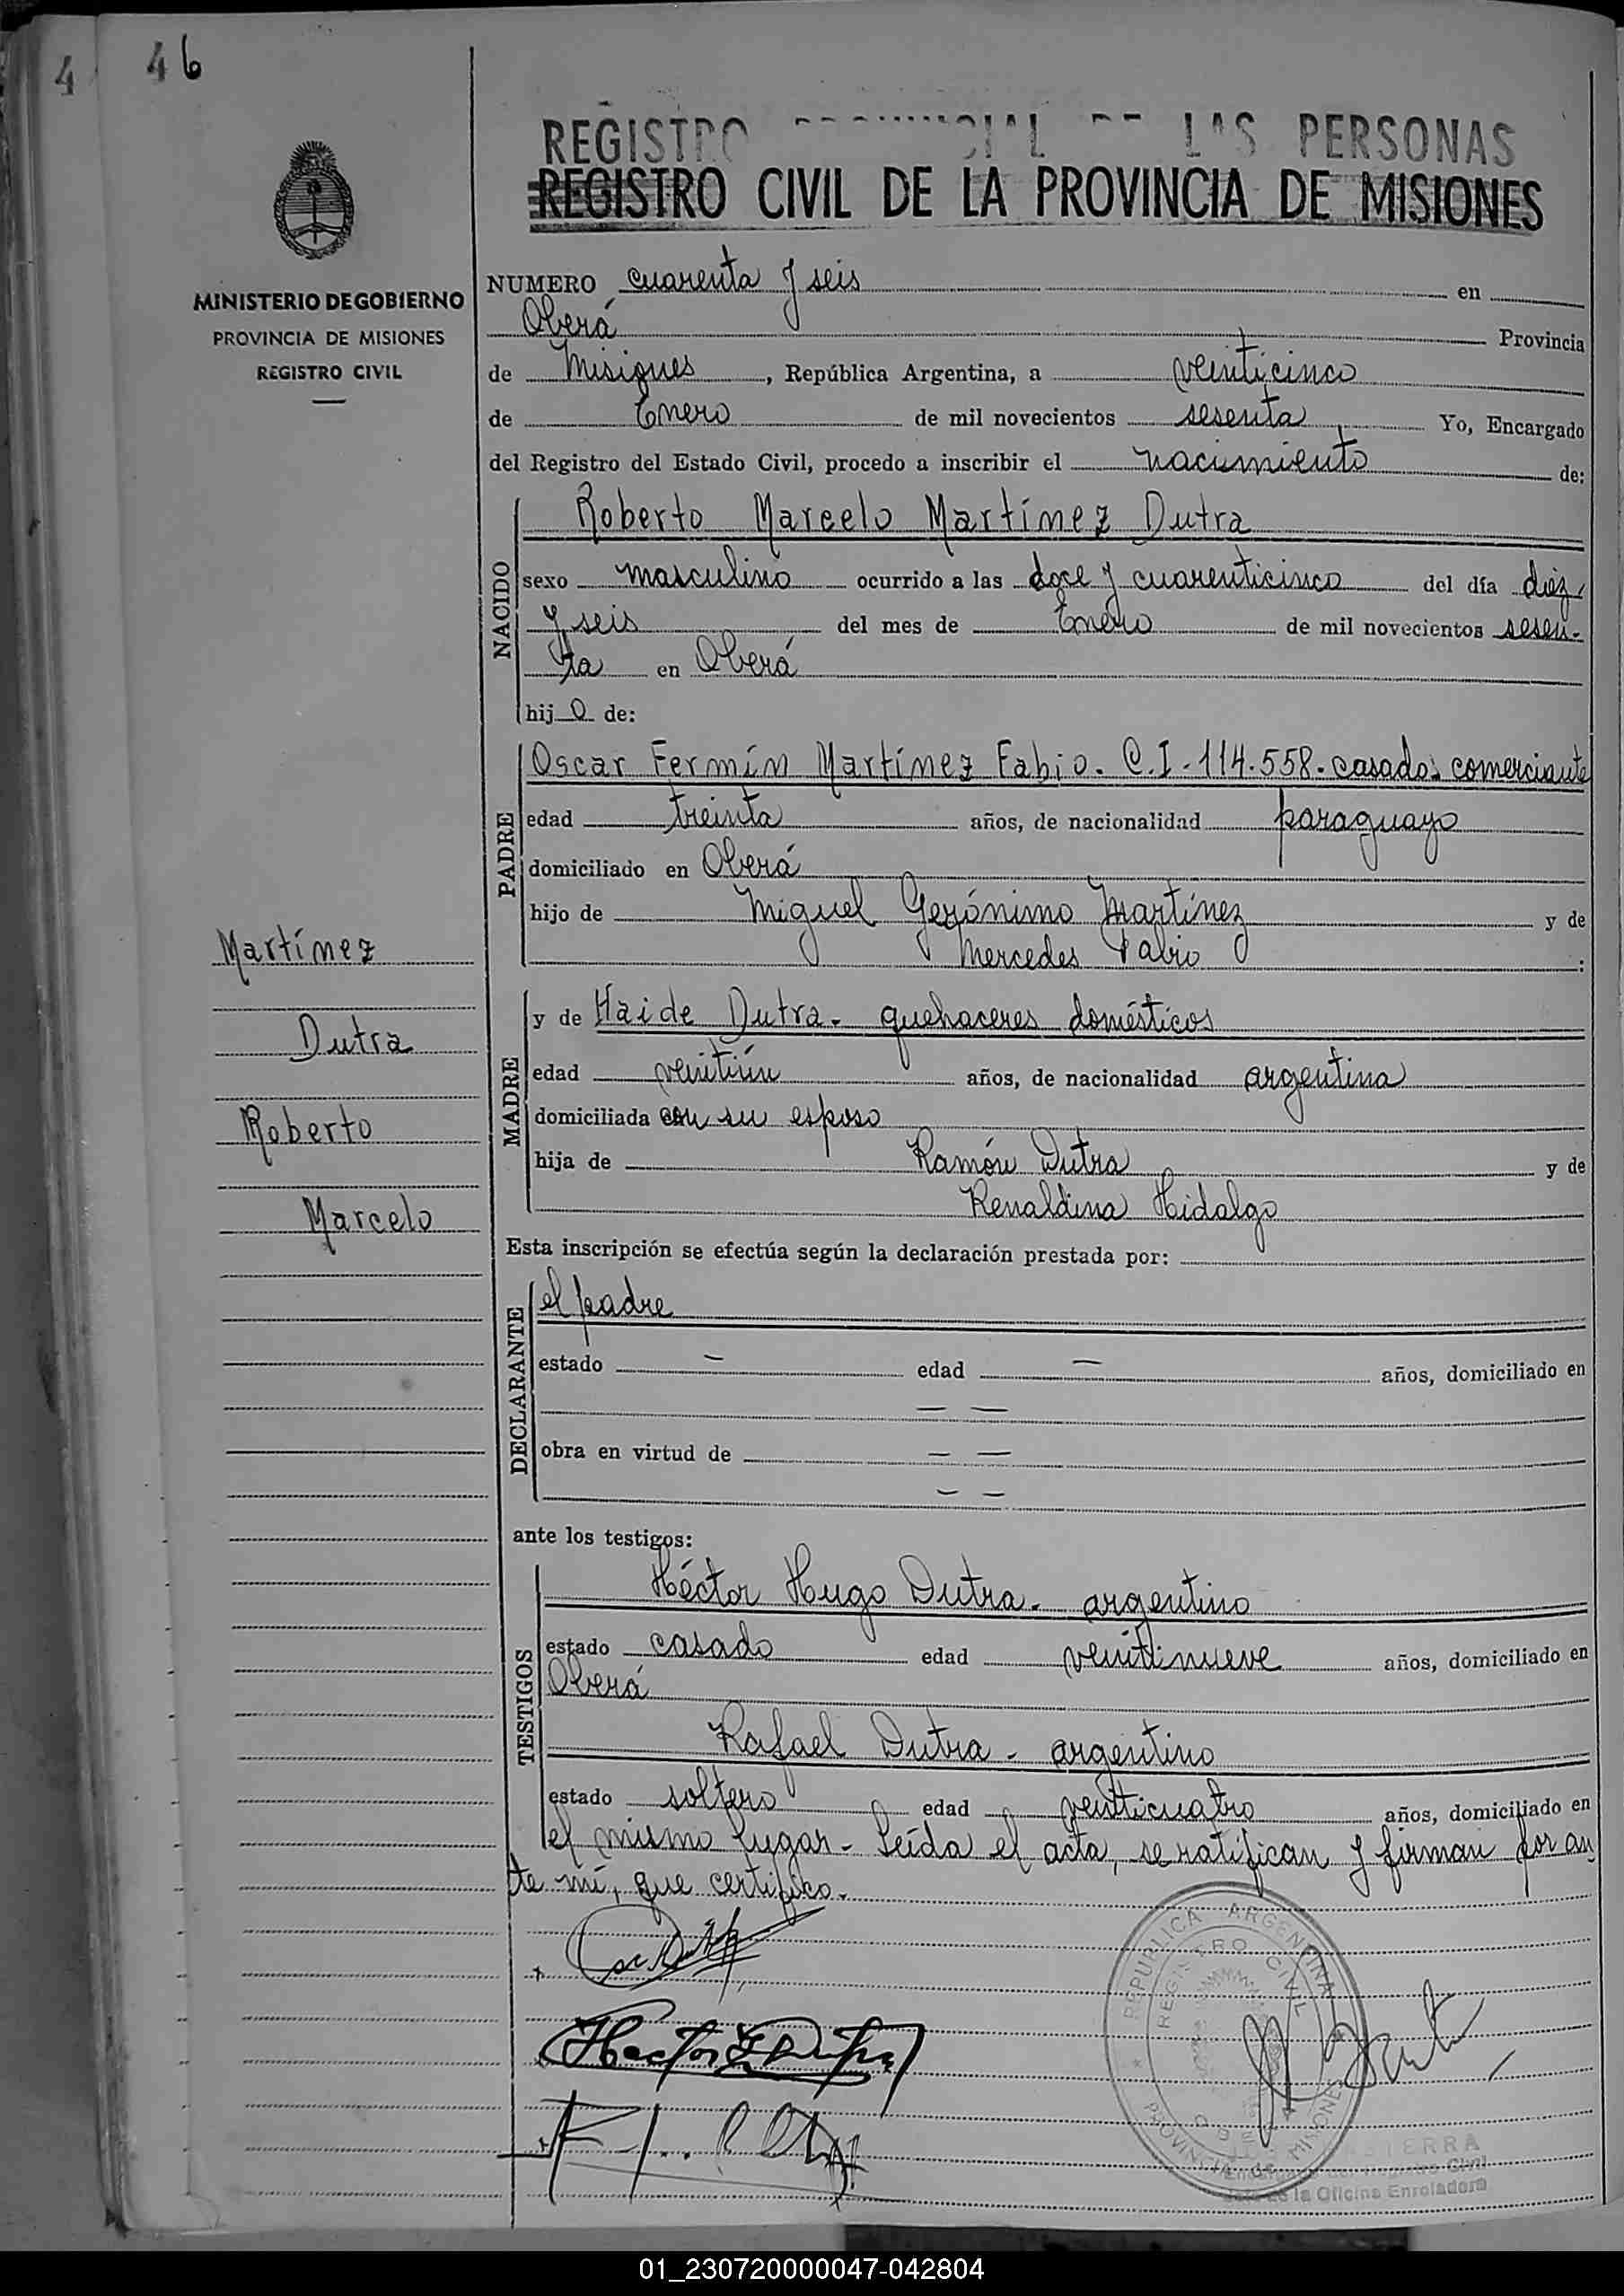 4
46
REGISTRO PROVINCIAL DE LAS PERSONAS
REGISTRO CIVIL DE LA PROVINCIA DE MISIONES
MINISTERIO DE GOBIERNO
PROVINCIA DE MISIONES
REGISTRO CIVIL
NUMERO cuarenta y seis en
Oberá Provincia
de Misiones, República Argentina, a veinticinco
de Enero de mil novecientos sesenta Yo, Encargado
del Registro del Estado Civil, procedo a inscribir el nacimiento de:
NACIDO
Roberto Marcelo Martínez Dutra
sexo masculino ocurrido a las doce y cuarenticinco del día diez
y seis del mes de Enero de mil novecientos sesen-
ta en Oberá
hijo de:
PADRE
Oscar Fermín Martínez Fabio. C.I. 114.558. casado. comerciante
edad treinta años, de nacionalidad paraguayo
domiciliado en Oberá
hijo de Miguel Gerónimo Martínez y de
Mercedes Fabio :
MADRE
y de Haide Dutra. quehaceres domésticos
edad veintiún años, de nacionalidad argentina
domiciliada con su esposo
hija de Ramón Dutra y de
Renaldina Hidalgo
Martínez
Dutra
Roberto
Marcelo
Esta inscripción se efectúa según la declaración prestada por:
DECLARANTE
el padre
estado — edad — años, domiciliado en
— —
obra en virtud de — —
— —
ante los testigos:
TESTIGOS
Héctor Hugo Dutra. argentino
estado casado edad veintinueve años, domiciliado en
Oberá
Rafael Dutra - argentino
estado soltero edad venticuatro años, domiciliado en
el mismo lugar - Leída el acta, se ratifican y firman por an
te mí, que certifico.
Hector H Dutra
REPUBLICA ARGENTINA
REGISTRO CIVIL
OBERA
PROVINCIA DE MISIONES
Encargado del Registro Civil
Jefe de la Oficina Enroladora
01_230720000047-042804